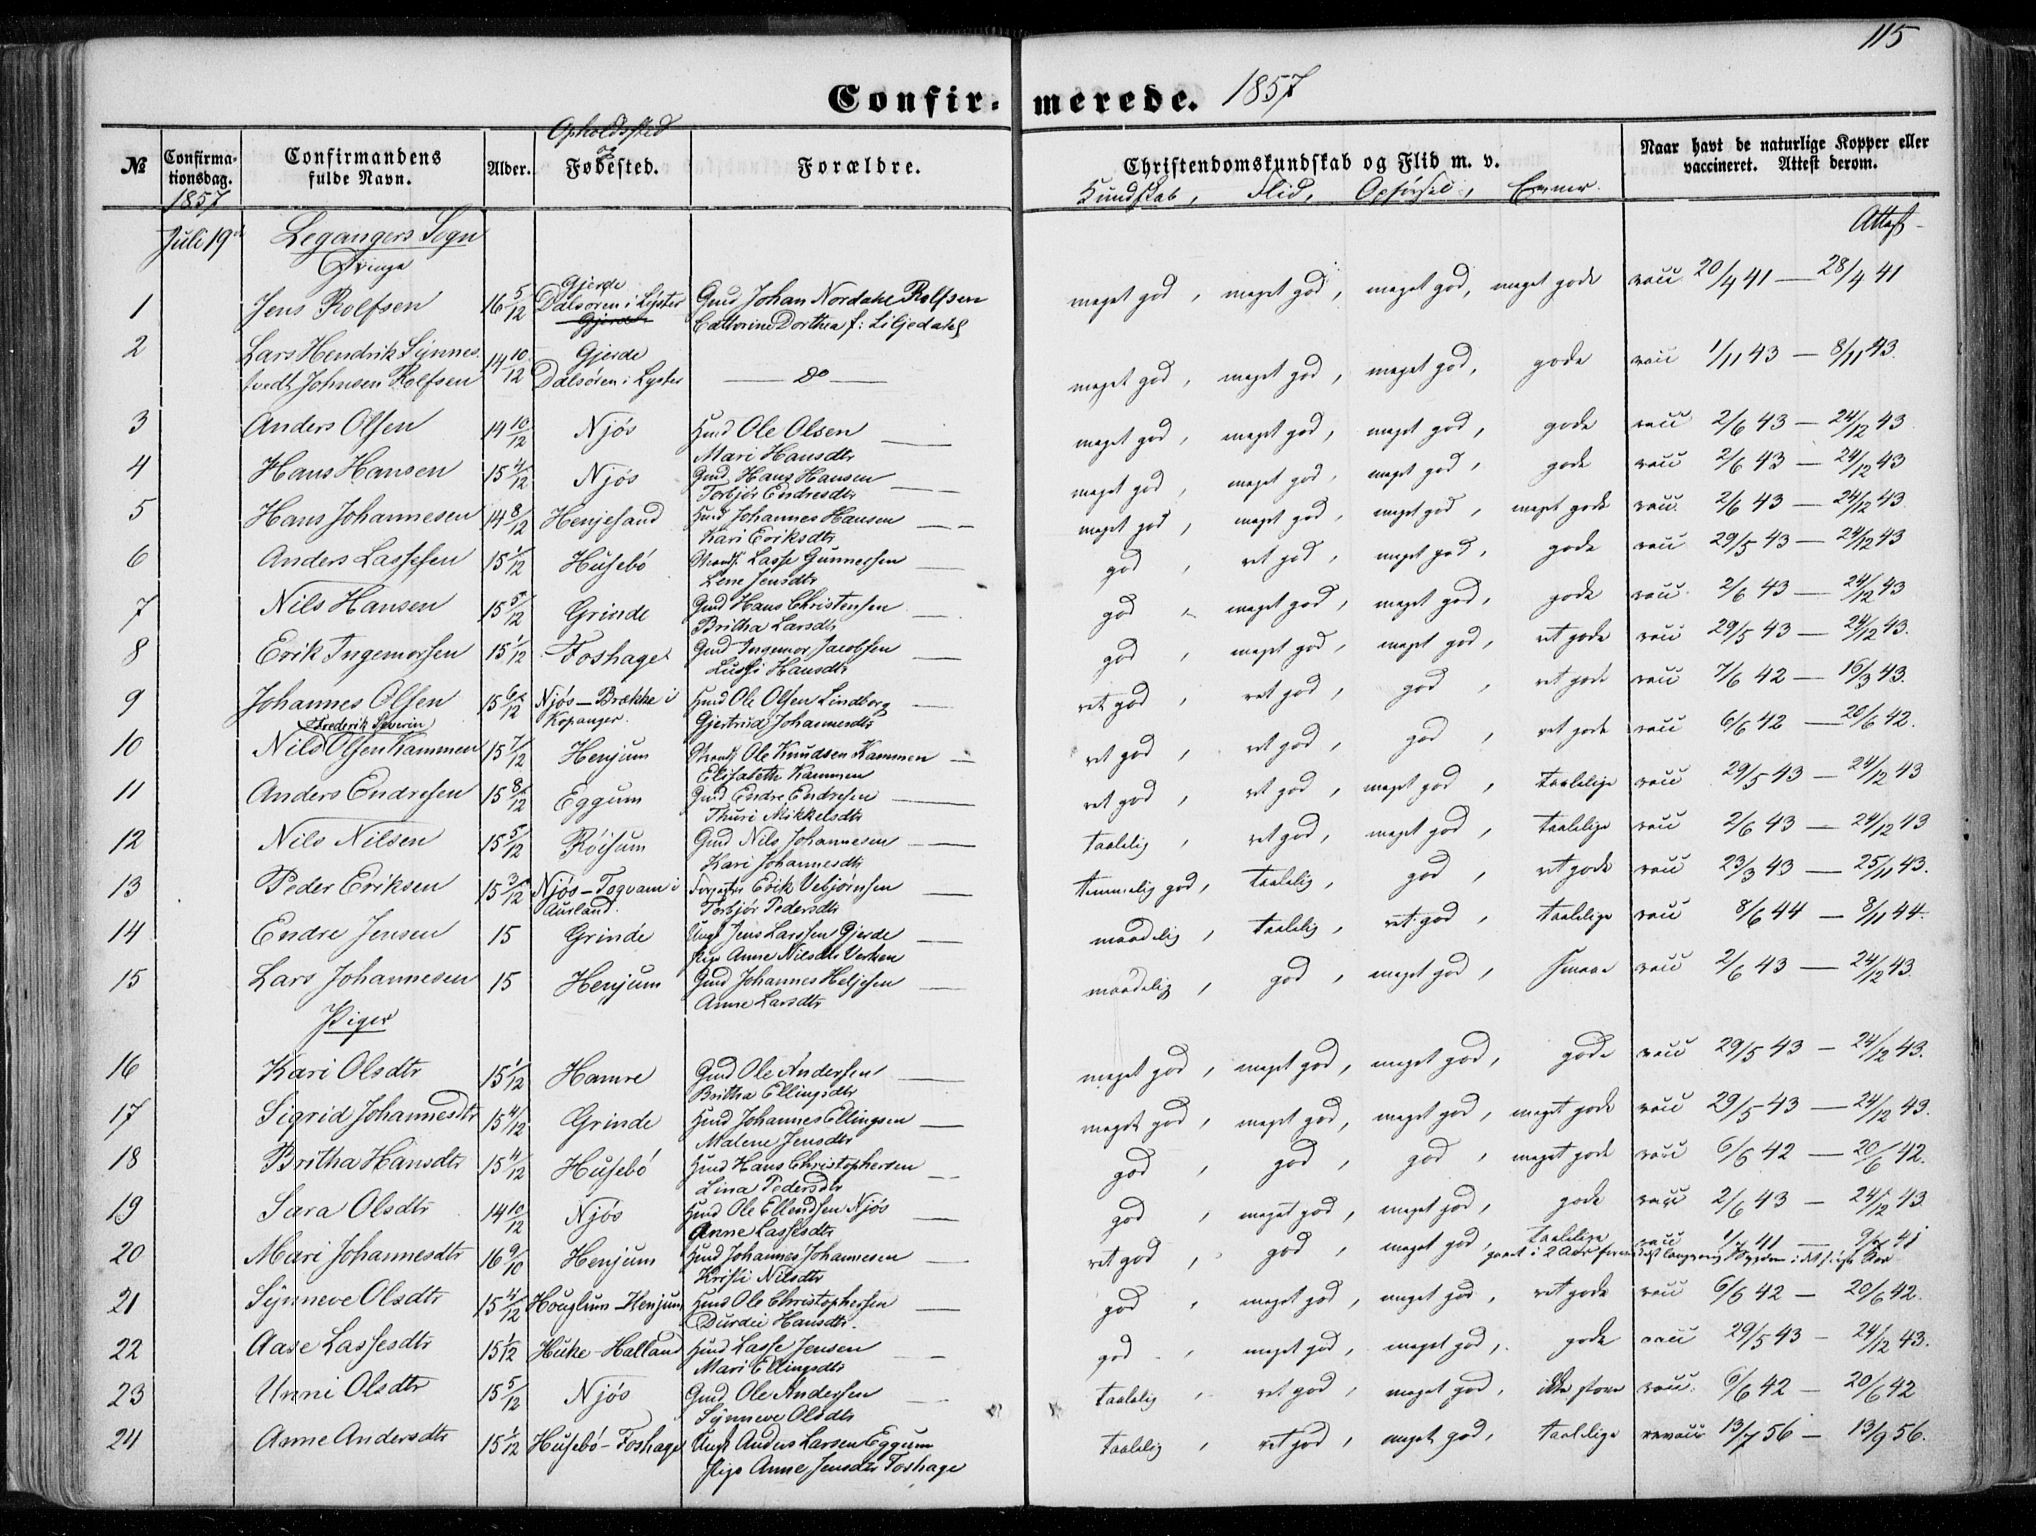 115
Confir- merede. 1857
Opholdssted og
№ Confirmationsdag. Confirmandens fulde Navn. Alder. Fødested. Forældre. Christendomskundskab og Flid m. v. Naar havt de naturlige Kopper eller vaccineret. Attest derom.
1857 Kundskab, Flid, Opførsel, Evner.
Juli 19de Legangers Sogn Attest
Drenge
1 Jens Rolfsen 16 5/12 Gjerde Dalsøren i Lyster Gmd Johan Nordahl Rolfsen meget god, meget god, meget god, meget gode vacc 20/4 41 — 28/4 41
Cathrine Dorthea f: Liljedahl
2 Lars Hendrik Synnes-
tvedt Johnsen Rolfsen 14 10/12 Gjerde Dalsøren i Lyster — do — meget god, meget god, meget god, gode vacc 1/11 43 — 8/11 43.
3 Anders Olsen 14 10/12 Njøs Hmd Ole Olsen meget god, meget god, meget god, gode vacc 2/6 43 — 24/12 43
Mari Hansdtr
4 Hans Hansen 15 4/12 Njøs Gmd Hans Hansen meget god, meget god, meget god, gode vacc 2/6 43 — 24/12 43
Torbjør Endresdtr
5 Hans Johannesen 14 8/12 Henjesand Hmd Johannes Hansen meget god, meget god, meget god, meget gode vacc. 2/6 43 — 24/12 43.
Kari Eriksdtr
6 Anders Lassesen 15 1/12 Husebø Lasse Gunnersen god, ret god, meget god, gode vacc 29/5 43 — 24/12 43
Lene Jensdtr
7 Nils Hansen 15 5/12 Grinde Gmd Hans Christensen god, meget god, meget god, gode vacc. 2/6 43 — 24/12 43
Britha Larsdtr
8 Erik Ingemorsen 15 1/12 Foshage Gmd Ingemor Jacobsen god, meget god, meget god, ret gode vacc 29/5 43 — 24/12 43.
Lussi Hansdtr
9 Johannes Olsen 15 6/12 Njøs — Brække i Kopanger. Hmd Ole Olsen Lindborg ret god, ret god, god, ret gode vacc 7/6 42 — 16/3 43.
Gjertrud Johannesdtr
Frederik Severin
10 Nils Olsen Kammen 15 7/12 Henjum Ole Knudsen Kammen ret god, ret god, god, ret gode vacc 6/6 42 — 20/6 42.
Elisabeth Kammen
11 Anders Endresen 15 8/12 Eggum Gmd Endre Endresen ret god, ret god, meget god, taalelige vacc 29/5 43 — 24/12 43
Thuri Mikkelsdtr
12 Nils Nilsen 15 5/12 Røisum Gmd Nils Johannesen taalelig, ret god, meget god, taalelige vacc 2/6 43 — 24/12 43
Kari Johannesdtr
13 Peder Eriksen 15 3/12 Njøs — Fogvam i Aurland. Erik Vebjørnsen temmelig god, taalelig, god, ret gode vacc 23/3 43 — 25/11 43.
Torbjør Pedersdtr
14 Endre Jensen 15 Grinde Ungk Jens Larssen Gjerde maadelig, taalelig, ret god, taalelige vacc 8/6 44 — 8/11 44.
Pige Anne Nilsdtr
15 Lars Johannesen 15 Henjum Gmd Johannes Heljesen maadelig, god, meget god, smaae vacc 2/6 43 — 24/12 43.
Anne Larsdtr
Piger
16 Kari Olsdtr 15 1/12 Hamre Gmd Ole Andersen meget god, meget god, meget god, gode vacc 29/5 43 — 24/12 43.
Britha Ellingsdtr
17 Sigrid Johannesdtr 15 4/12 Grinde Hmd Johannes Ellingsen meget god, meget god, meget god, meget gode vacc 29/5 43 — 24/12 43.
Malene Jensdtr
18 Britha Hansdtr 15 4/12 Husebø Hmd Hans Christophersen god, god, god, meget gode vacc 6/6 42 — 20/6 42.
Lina Pedersdtr
19 Sara Olsdtr 14 10/12 Njøs Hmd Ole Ellendsen Njøs god, meget god, meget god, gode vacc 2/6 43 — 24/12 43
Anne Lassesdtr
20 Mari Johannesdtr 16 9/10 Henjum Hmd Johannes Johannesen ret god, god, meget god, taalelige vacc
Kristi Nilsdtr
21 Synneve Olsdtr 15 4/12 Houglum-Henjum Hmd Ole Christophersen god, meget god, meget god, ret gode vacc 6/6 42 — 20/6 42.
Durdei Hansdtr.
22 Aase Lassesdtr 15 1/12 Huke-Halland Hmd Lasse Jensen god, meget god, meget god, gode vacc 29/5 43 — 24/12 43.
Mari Ellingsdtr
23 Unni Olsdtr 15 5/12 Njøs Gmd Ole Andersen taalelig, ret god, meget god, ikke store vacc. 6/6 42 — 20/6 42
Synneve Olsdtr
24 Anne Andersdtr 15 1/12 Husebø-Foshage Ungk Anders Larsen Eggum taalelig, ret god, meget god, taalelige revacc 13/7 56 — 13/9 56.
Pige Anne Jensdtr Foshage